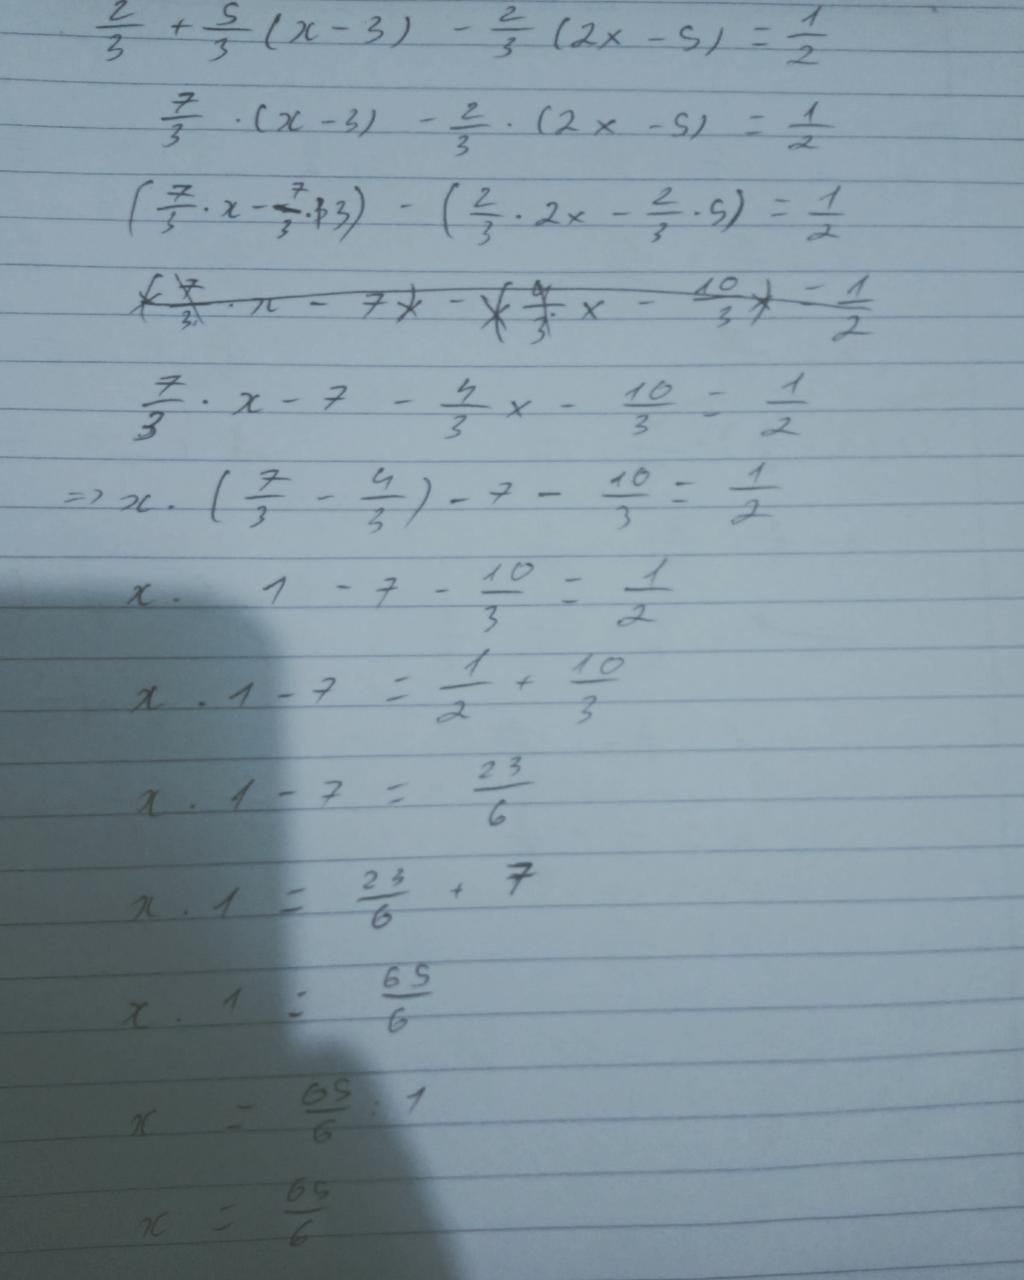 2/3 + 5/3 (x - 3) - 2/3 (2x - 5) = 1/2
7/3 · (x - 3) - 2/3 · (2x - 5) = 1/2
(7/3 · x - 7/3 · 3) - (2/3 · 2x - 2/3 · 5) = 1/2
(7/3 · x - 7) - (4/3 x - 10/3) = 1/2
7/3 · x - 7 - 4/3 x - 10/3 = 1/2
=> x · (7/3 - 4/3) - 7 - 10/3 = 1/2
x · 1 - 7 - 10/3 = 1/2
x · 1 - 7 = 1/2 + 10/3
x · 1 - 7 = 23/6
x · 1 = 23/6 + 7
x · 1 = 65/6
x = 65/6 : 1
x = 65/6